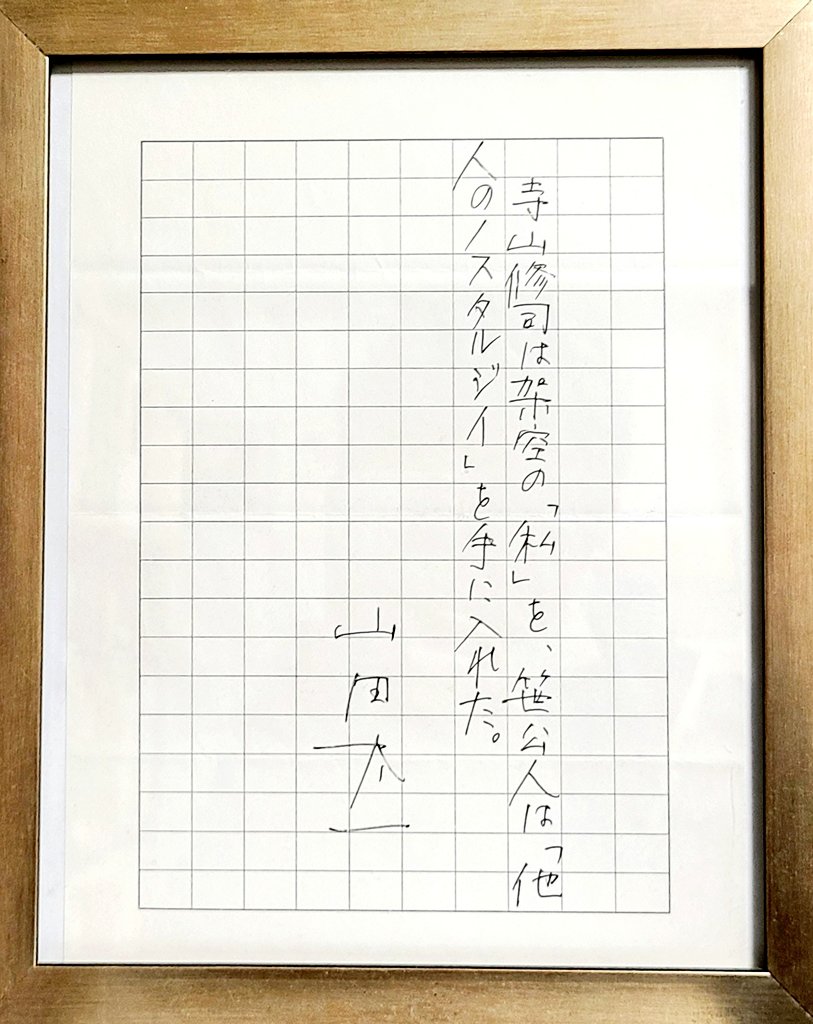 寺山修司は架空の「私」を、笹公人は「他
人のノスタルジイ」を手に入れた。
山田太一